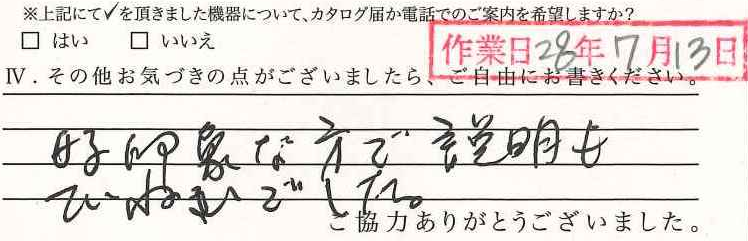 ※上記にて✓を頂きました機器について、カタログ届か電話でのご案内を希望しますか?
□ はい □ いいえ
作業日28年7月13日
Ⅳ．その他お気づきの点がございましたら、ご自由にお書きください。
好印象な方で説明も
ていねいでした。
ご協力ありがとうございました。